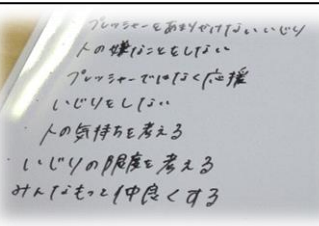 プレッシャーをあまりかけないいじり
人の嫌なことをしない
プレッシャーではなく応援
いじりをしない
人の気持ちを考える
いじりの限度を考える
みんなもっと仲良くする